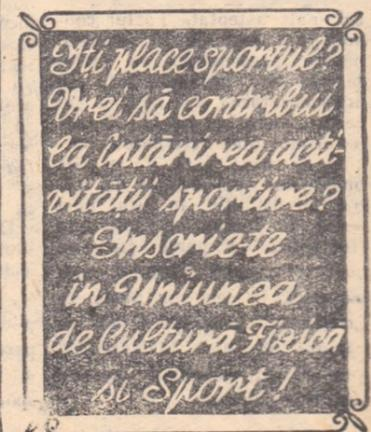 Iti place sportul?
Vrei să contribui
la întărirea acti-
vității sportive?
Inscrie-te
în Uniunea
de Cultură Fizică
si Sport!